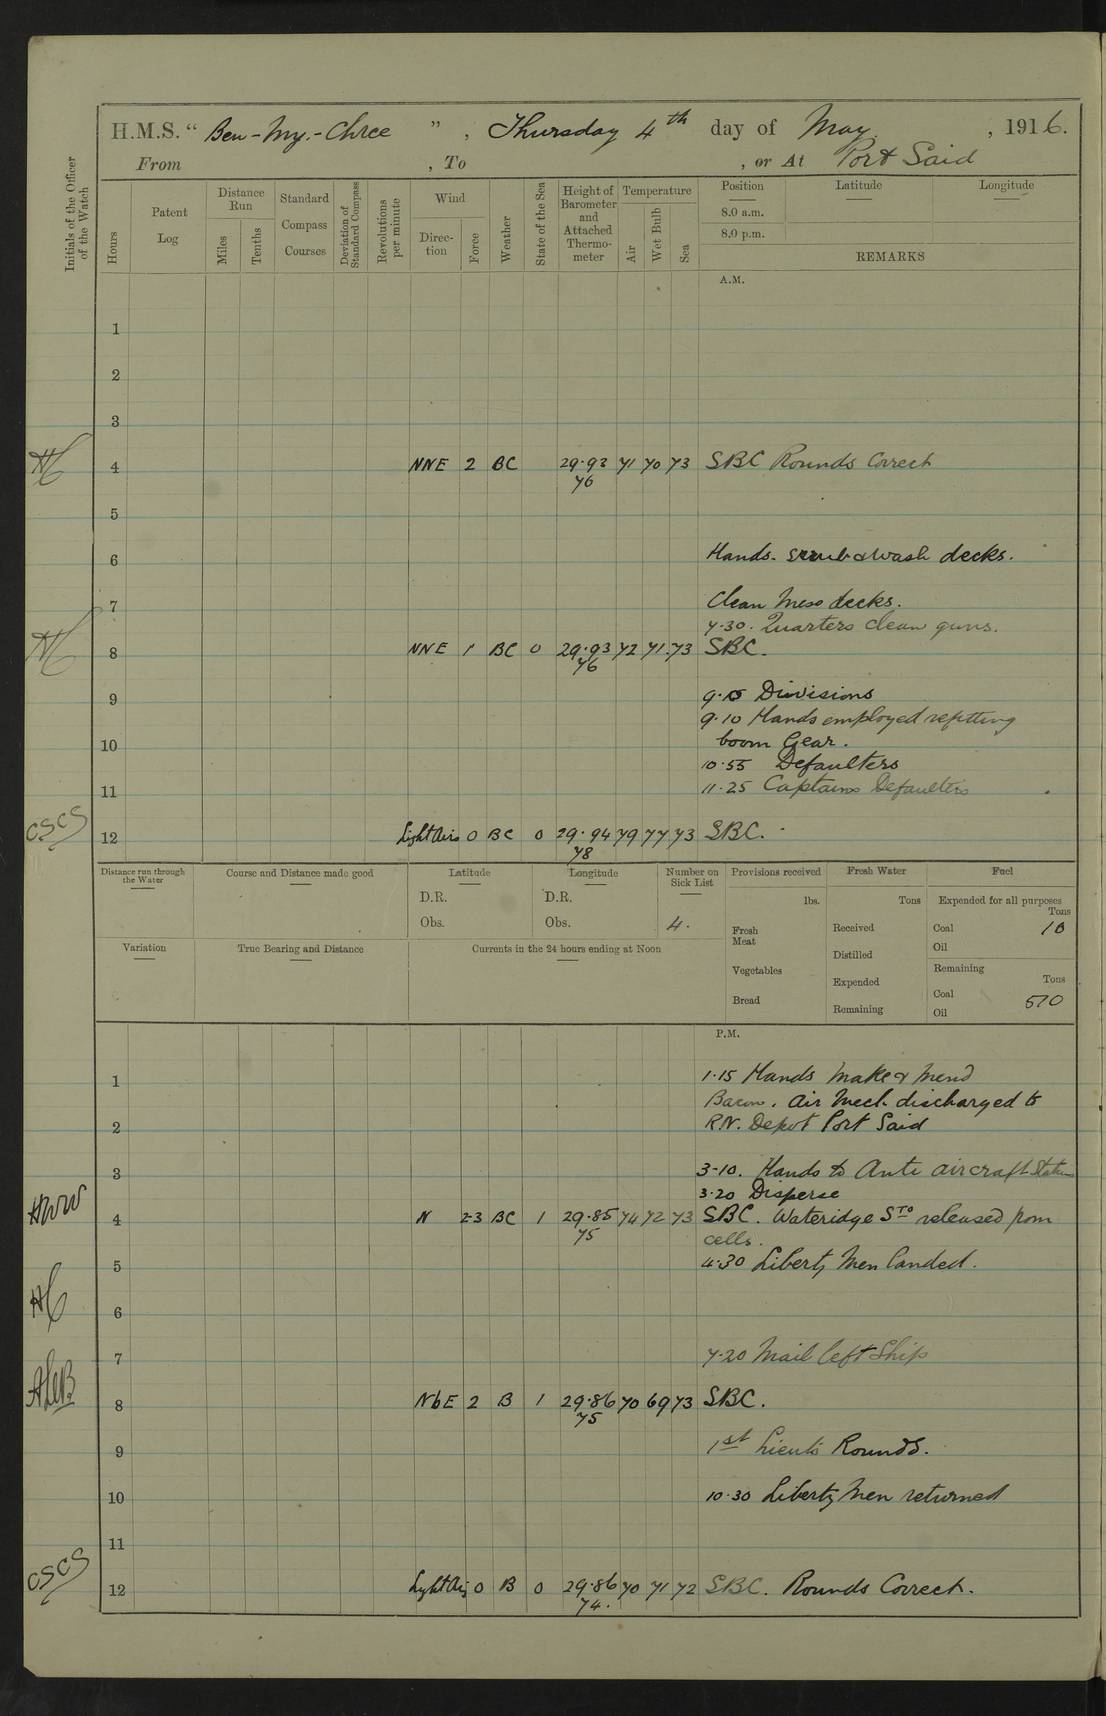 H.M.S. " Ben-My-Chree ", Thursday 4th day of May, 1916.
From , To , or At Port Said
Initials of the Officer of the Watch
Hours
Patent Log
Distance Run
Miles
Tenths
Standard Compass Courses
Deviation of Standard Compass
Revolutions per minute
Wind
Direction
Force
Weather
State of the Sea
Height of Barometer and Attached Thermometer
Temperature
Air
Wet Bulb
Sea
Position
Latitude
Longitude
8.0 a.m.
8.0 p.m.
REMARKS
A.M.
1
2
3
4 NNE 2 BC 29.93 71 70 73 SBC Rounds Correct
76
5
6 Hands. scrub & wash decks.
7 Clean Mess decks.
7.30. Quarters clean guns.
8 NNE 1 BC 0 29.93 72 71 73 SBC.
76
9 9.5 Divisions
9.10 Hands employed refitting
10 boom Gear.
10.55 Defaulters
11 11.25 Captains Defaulters
CSCS
12 Light Airs 0 BC 0 29.94 79 77 73 SBC.
78
Distance run through the Water
Course and Distance made good
Latitude
D.R.
Obs.
Longitude
D.R.
Obs.
Number on Sick List
4.
Provisions received
lbs.
Fresh Meat
Vegetables
Bread
Fresh Water
Tons
Received
Distilled
Expended
Remaining
Fuel
Expended for all purposes
Tons
Coal 10
Oil
Remaining
Tons
Coal 510
Oil
Variation
True Bearing and Distance
Currents in the 24 hours ending at Noon
P.M.
1 1.15 Hands Make & Mend
Bacon. Air Mech discharged to
2 R.N. Depot Port Said
3 3-10. Hands to Anti aircraft Stations
3.20 Disperse
HWW
4 N 2-3 BC 1 29.85 74 72 73 SBC. Wateridge Sto released from
75 cells.
5 4.30 Liberty Men landed.
6
7 7.20 Mail left Ship
8 NbE 2 B 1 29.86 70 69 73 SBC.
75
9 1st Lieuts Rounds.
10 10.30 Liberty Men returned
11
CSCS
12 Light Airs 0 B 0 29.86 70 71 72 SBC. Rounds Correct.
74.